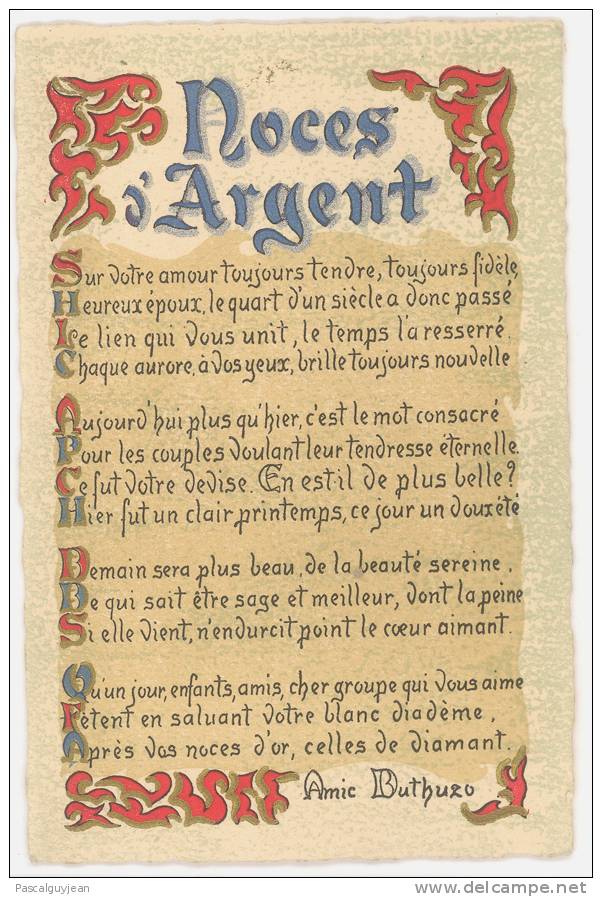 Noces
d'Argent
Sur votre amour toujours tendre, toujours fidèle,
Heureux époux, le quart d'un siècle a donc passé
Le lien qui vous unit, le temps l'a resserré.
Chaque aurore, à vos yeux, brille toujours nouvelle
Aujourd'hui plus qu'hier, c'est le mot consacré
Pour les couples voulant leur tendresse éternelle.
Ce fut votre devise. En est-il de plus belle?
Hier fut un clair printemps, ce jour un doux été
Demain sera plus beau, de la beauté sereine,
De qui sait être sage et meilleur, dont la peine
Si elle vient, n'endurcit point le cœur aimant.
Qu'un jour, enfants, amis, cher groupe qui vous aime
Fêtent en saluant votre blanc diadème,
Après vos noces d'or, celles de diamant.
Amic Buthuzo
Pascalguyjean
www.delcampe.net